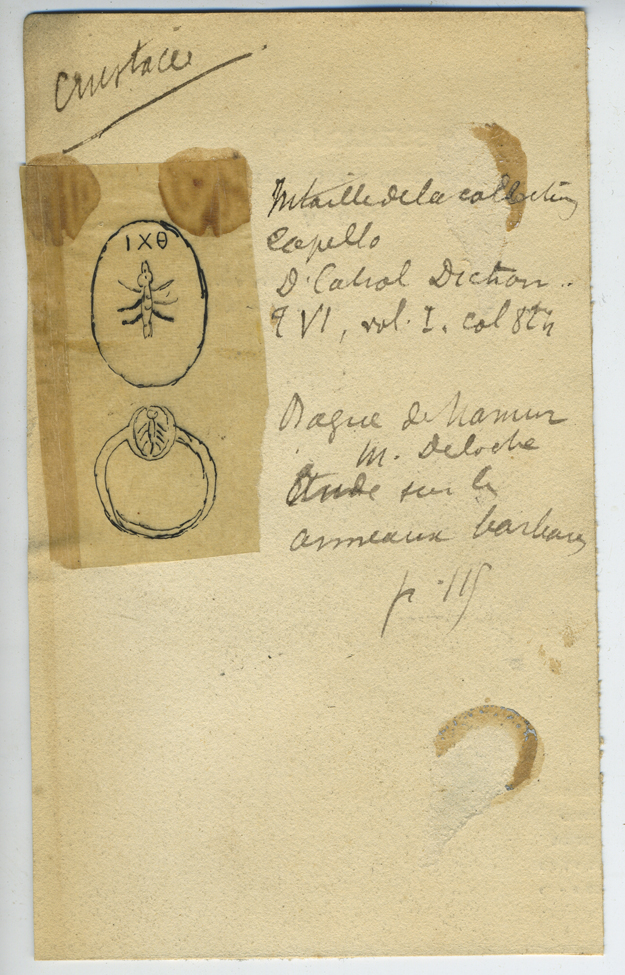 Crustacé
ΙΧΘ
Intaille de la collection
Capello
D. Cabrol Diction..
VI, vol. I. col
Bague de Namur
M. Deloche
Etude sur les
anneaux barbares
p. 115